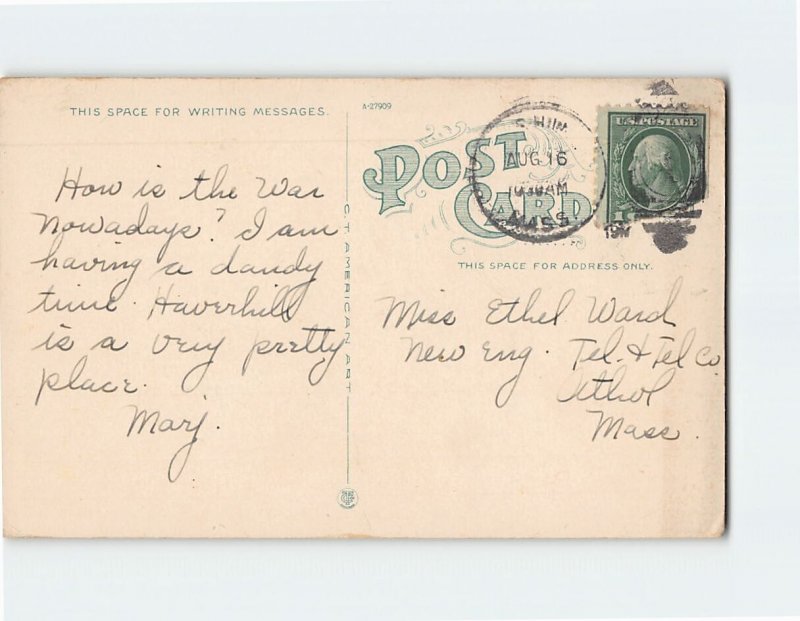 THIS SPACE FOR WRITING MESSAGES.
A-27909
POST
CARD
THIS SPACE FOR ADDRESS ONLY.
AUG 16
1030AM
MASS.
U.S. POSTAGE
1
C.T. AMERICAN ART
How is the War
nowadays? I am
having a dandy
time. Haverhill
is a very pretty
place.
Marj.
Miss Ethel Ward
New Eng. Tel. & Tel Co.
Athol
Mass.